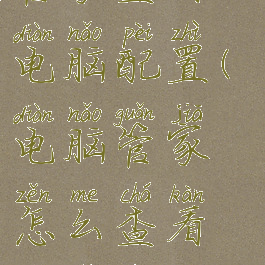 diàn nǎo pèi zhì
电脑配置(
diàn nǎo guǎn jiā
电脑管家
zěn me chá kàn
怎么查看